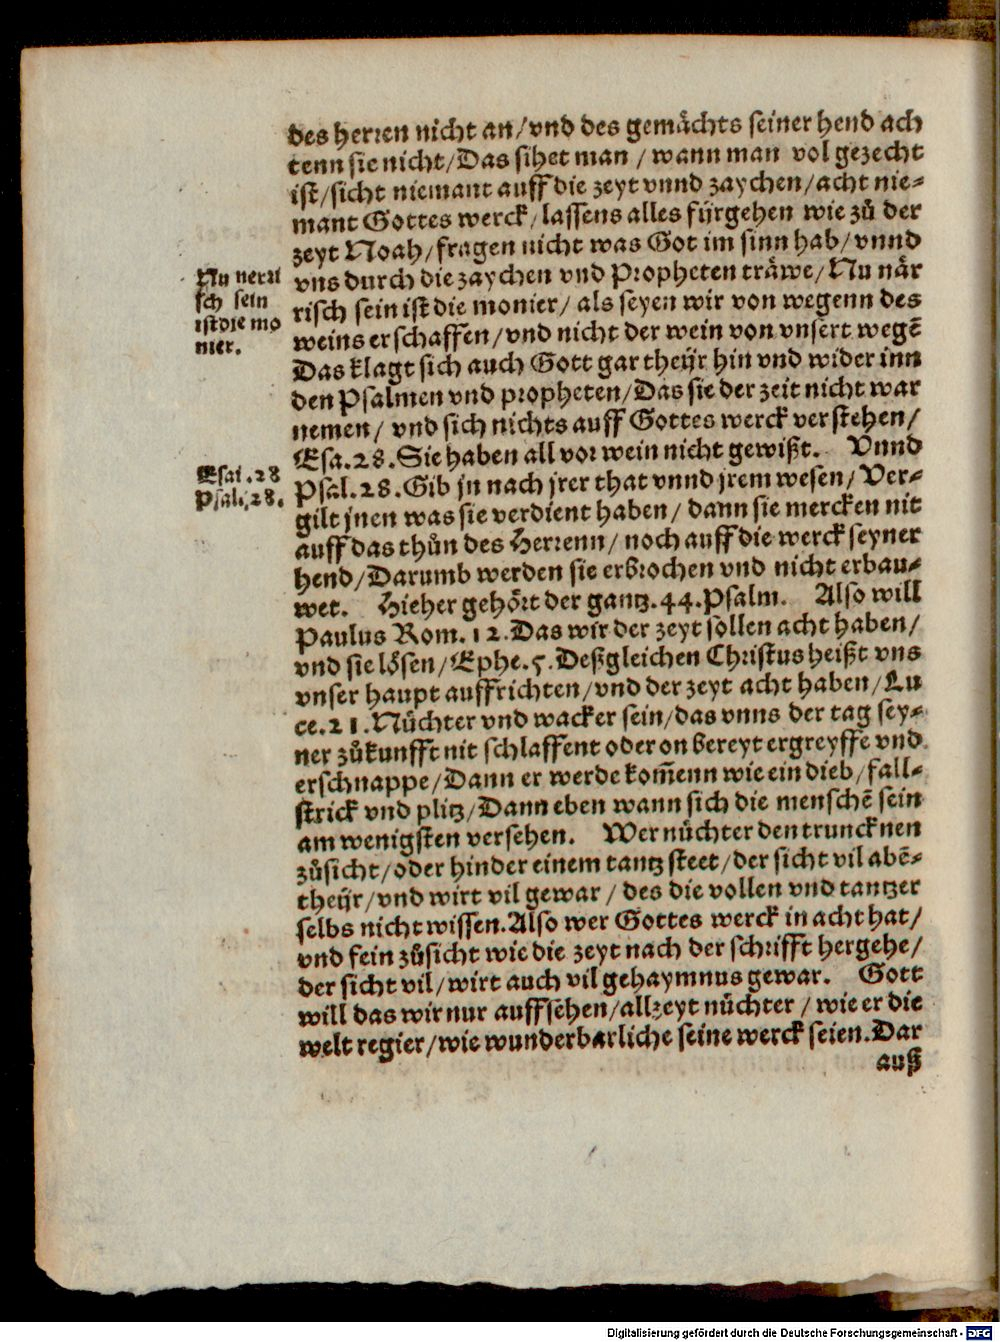 des herren nicht an/vnd des gemächts seiner hend ach
tenn sie nicht/Das sihet man / wann man vol gezecht
ist/sicht niemant auff die zeyt vnnd zaychen/acht nie-
mant Gottes werck/lassens alles fürgehen wie zů der
zeyt Noah/fragen nicht was Got im sinn hab/vnnd
vns durch die zaychen vnd Propheten träwe/Nu när
risch sein ist die monier/ als seyen wir von wegenn des
weins erschaffen/vnd nicht der wein von vnsert wegē
Das klagt sich auch Gott gar theÿr hin vnd wider inn
den Psalmen vnd propheten/Das sie der zeit nicht war
nemen/ vnd sich nichts auff Gottes werck verstehen/
Esa.28.Sie haben all vor wein nicht gewißt. Vnnd
Psal.28.Gib jn nach jrer that vnnd jrem wesen/ Ver-
gilt jnen was sie verdient haben/ dann sie mercken nit
auff das thůn des Herrenn/ noch auff die werck seyner
hend/Darumb werden sie erbrochen vnd nicht erbau-
wet. Hieher gehört der gantz.44.Psalm. Also will
Paulus Rom.12.Das wir der zeyt sollen acht haben/
vnd sie lösen/Ephe.5.Deßgleichen Christus heißt vns
vnser haupt auffrichten/vnd der zeyt acht haben/Lu
ce.21.Nüchter vnd wacker sein/das vnns der tag sey-
ner zůkunfft nit schlaffent oder on bereyt ergreyffe vnd
erschnappe/Dann er werde kom̄enn wie ein dieb/fall-
strick vnd plitz/Dann eben wann sich die menschē sein
am wenigsten versehen. Wer nüchter den truncknen
zůsicht/oder hinder einem tantz steet/der sicht vil abē-
theÿr/vnd wirt vil gewar / des die vollen vnd tantzer
selbs nicht wissen.Also wer Gottes werck in acht hat/
vnd fein zůsicht wie die zeyt nach der schrifft hergehe/
der sicht vil/wirt auch vil gehaymnus gewar. Gott
will das wir nur auffsehen/allzeyt nüchter / wie er die
welt regier/wie wunderbarliche seine werck seien.Dar
auß
Nu nerri
sch sein
ist die mo
nier.
Esai.28
Psal.28.
Digitalisierung gefördert durch die Deutsche Forschungsgemeinschaft - DFG